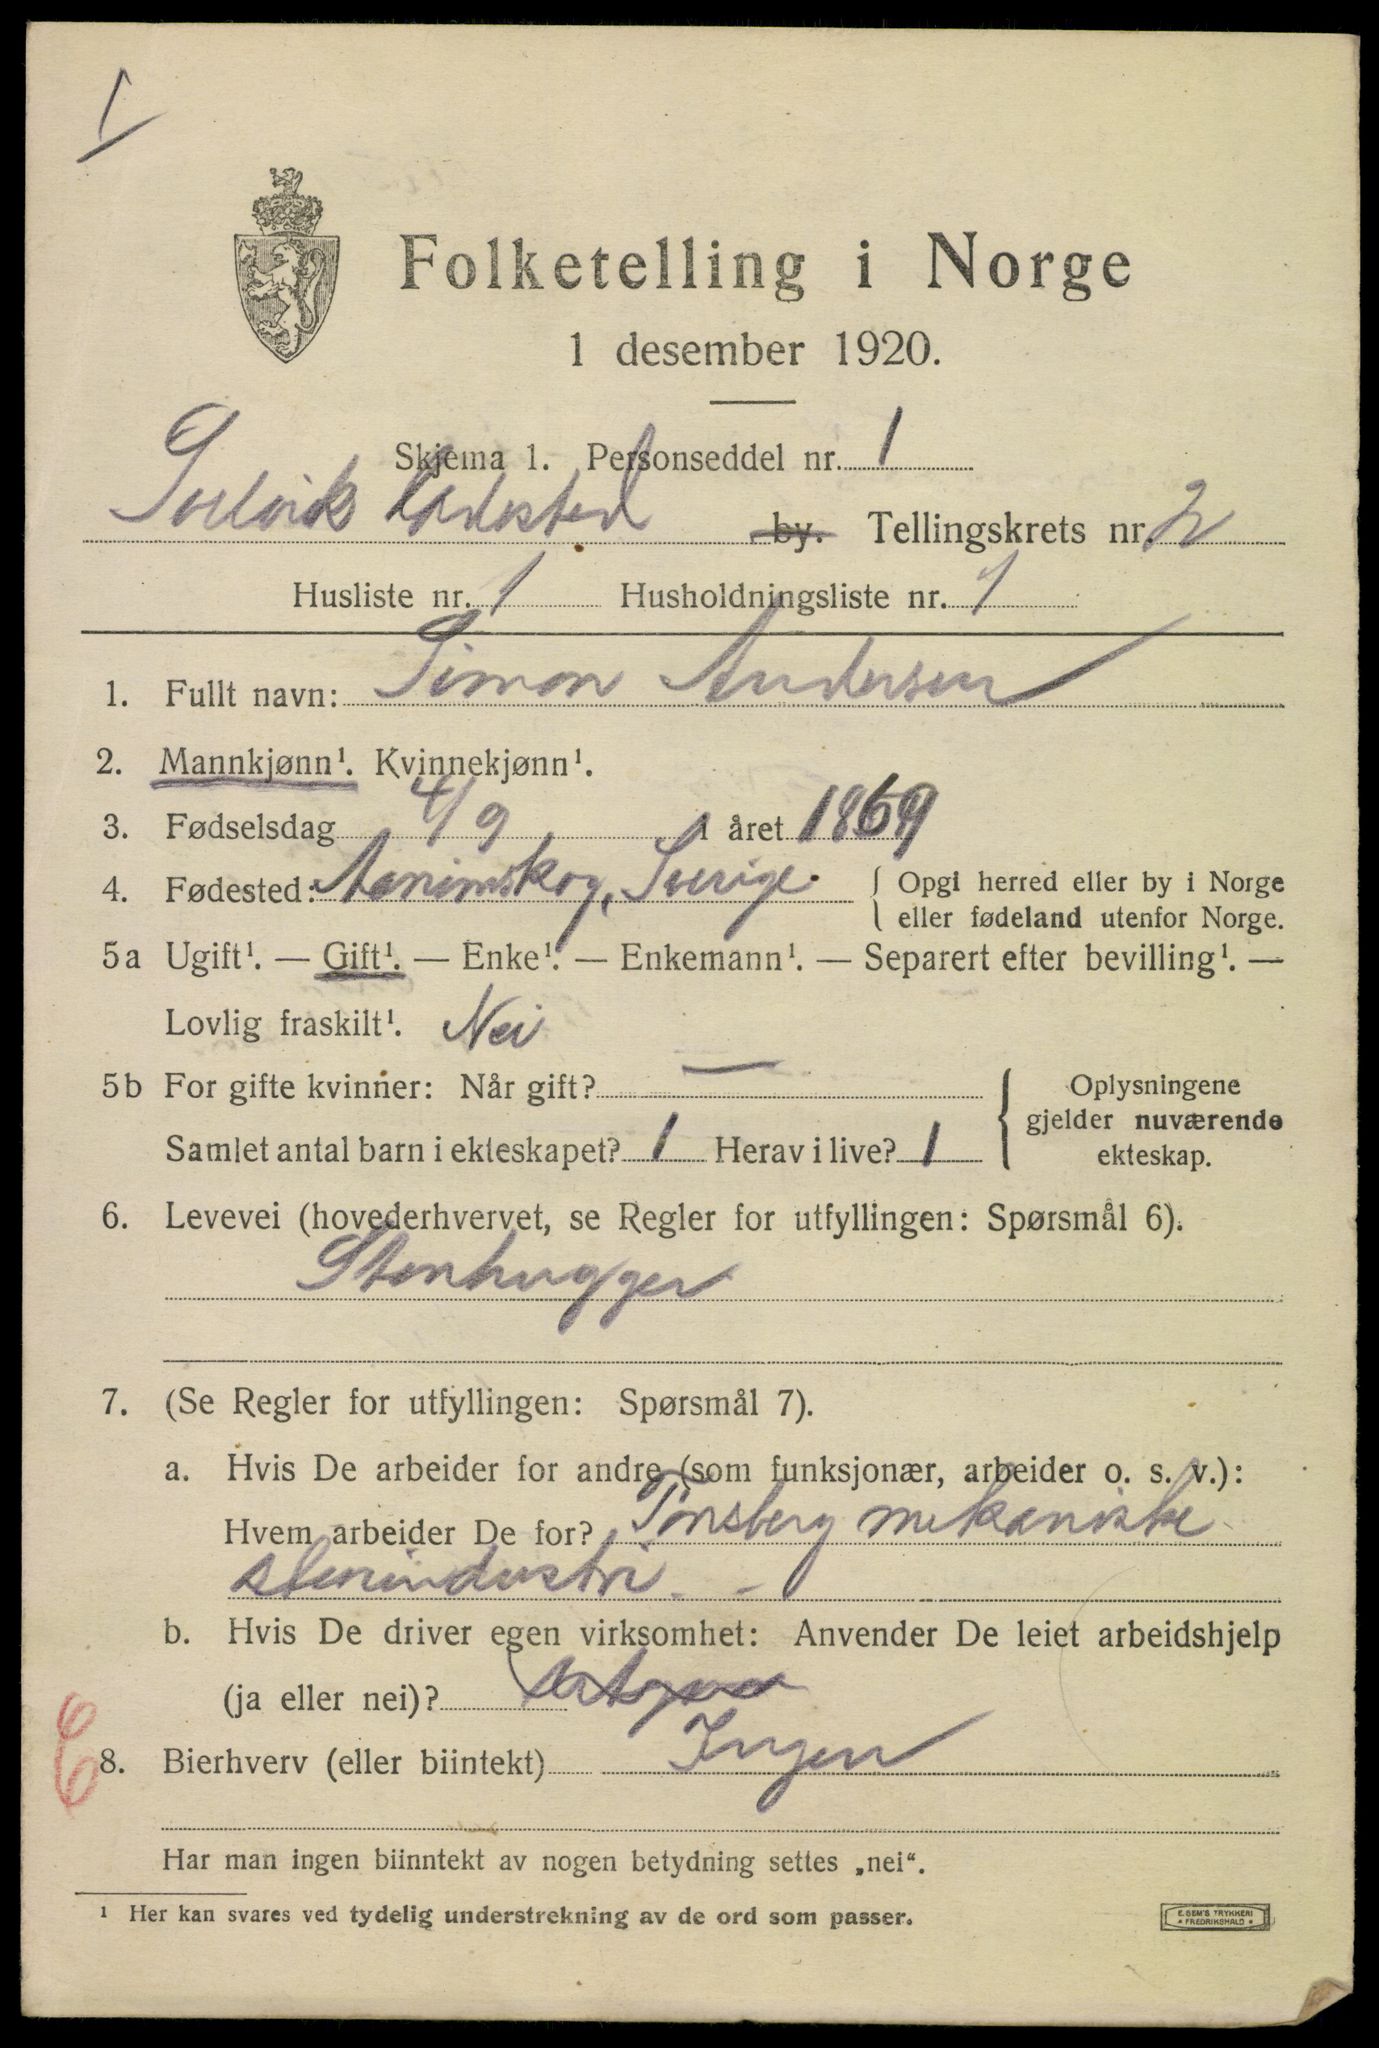 1
Folketelling i Norge
1 desember 1920.
Skjema 1. Personseddel nr. 1
Svelvik Ladested by. Tellingskrets nr. 2
Husliste nr. 1 Husholdningsliste nr. 1
1. Fullt navn: Simon Andersen
2. Mannkjønn¹. Kvinnekjønn¹.
3. Fødselsdag 4/9 i året 1869
4. Fødested: Aanimskog, Sverige. { Opgi herred eller by i Norge
eller fødeland utenfor Norge.
5a Ugift¹. — Gift¹. — Enke¹. — Enkemann¹. — Separert efter bevilling¹. —
Lovlig fraskilt¹. Nei
5b For gifte kvinner: Når gift? —
Samlet antal barn i ekteskapet? 1 Herav i live? 1
{ Oplysningene
gjelder nuværende
ekteskap.
6. Levevei (hovederhvervet, se Regler for utfyllingen: Spørsmål 6).
Stenhugger
7. (Se Regler for utfyllingen: Spørsmål 7).
a. Hvis De arbeider for andre (som funksjonær, arbeider o. s. v.):
Hvem arbeider De for? Tønsberg mekaniske
stenindustri. -
b. Hvis De driver egen virksomhet: Anvender De leiet arbeidshjelp
(ja eller nei)?
8. Bierhverv (eller biintekt) Ingen
Har man ingen biinntekt av nogen betydning settes „nei“.
¹ Her kan svares ved tydelig understrekning av de ord som passer.
E. SEM'S TRYKKERI
* FREDRIKSHALD *